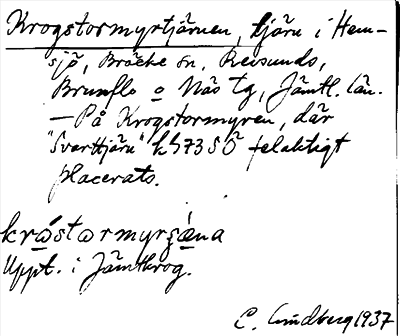 Krogstormyrtjärnen, tjärn i Hem-
sjö, Bräcke sn, Revsunds,
Brunflo o Näs tg, Jämtl. län.
— På Krogstormyren, där
"Svarttjärn" k 73 SÖ felaktigt
placerats.
krɷ́stɷrmyrʂæ̀na
Uppt. i Jämtkrog.
C. Lindberg 1937